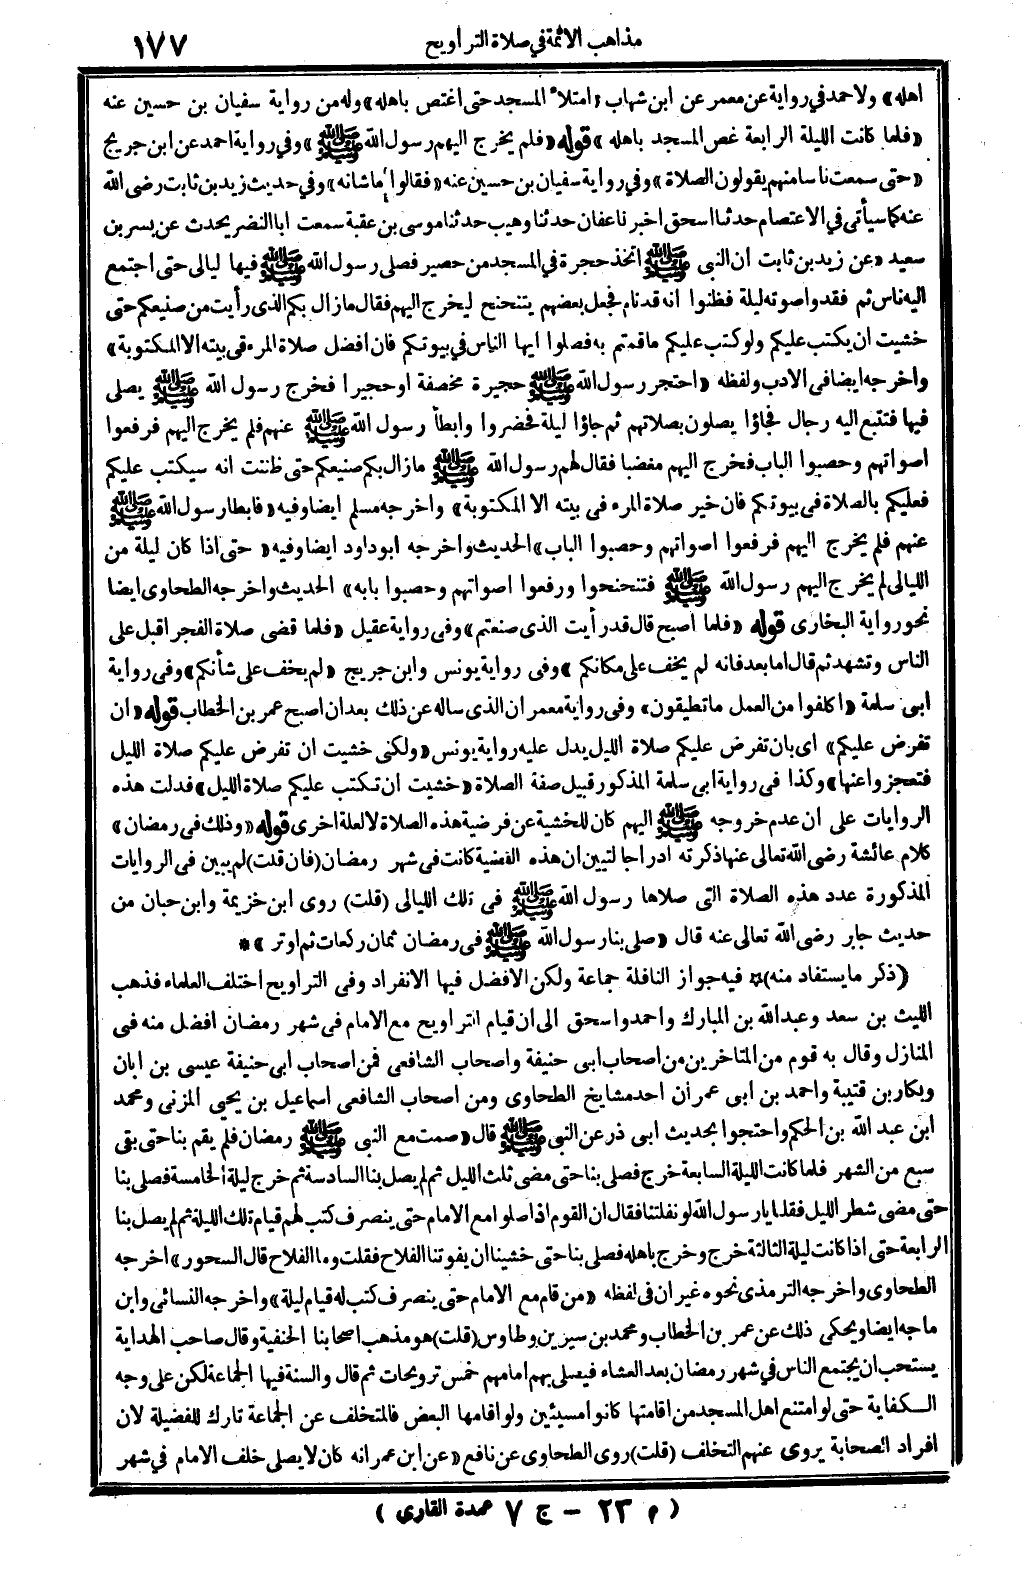 مذاهب الائمة في صلاة التراويح ١٧٧
اهله» ولاحمد في رواية عن معمر عن ابن شهاب «امتلأ المسجد حتى اغتص باهله» وله من رواية سفيان بن حسين عنه
«فلما كانت الليلة الرابعة غص المسجد باهله» قوله «فلم يخرج اليهم رسول الله ﷺ» وفي رواية احمد عن ابن جريج
«حتى سمعت ناسا منهم يقولون الصلاة» وفي رواية سفيان بن حسين عنه «فقالوا ما شانه» وفي حديث زيد بن ثابت رضى الله
عنه كما سيأتى في الاعتصام حدثنا اسحق اخبرنا عفان حدثنا وهيب حدثنا موسى بن عقبة سمعت ابا النضر يحدث عن بسر بن
سعيد «عن زيد بن ثابت ان النبي ﷺ اتخذ حجرة في المسجد من حصير فصلى رسول الله ﷺ فيها ليالى حتى اجتمع
اليه ناس ثم فقدوا صوته ليلة فظنوا انه قد نام فجعل بعضهم يتنحنح ليخرج اليهم فقال ما زال بكم الذى رأيت من صنيعكم حتى
خشيت ان يكتب عليكم ولو كتب عليكم ما قمتم به فصلوا ايها الناس في بيوتكم فان افضل صلاة المرء في بيته الا المكتوبة»
واخرجه ايضا في الادب ولفظه «احتجر رسول الله ﷺ حجيرة مخصفة او حجيرا فخرج رسول الله ﷺ يصلى
فيها فتتبع اليه رجال فجاؤا يصلون بصلاتهم ثم جاؤا ليلة فحضروا وابطأ رسول الله ﷺ عنهم فلم يخرج اليهم فرفعوا
اصواتهم وحصبوا الباب فخرج اليهم مغضبا فقال لهم رسول الله ﷺ ما زال بكم صنيعكم حتى ظننت انه سيكتب عليكم
فعليكم بالصلاة في بيوتكم فان خير صلاة المرء في بيته الا المكتوبة» واخرجه مسلم ايضا وفيه «فابطا رسول الله ﷺ
عنهم فلم يخرج اليهم فرفعوا اصواتهم وحصبوا الباب» الحديث واخرجه ابو داود ايضا وفيه «حتى اذا كان ليلة من
الليالى لم يخرج اليهم رسول الله ﷺ فتنحنحوا ورفعوا اصواتهم وحصبوا بابه» الحديث واخرجه الطحاوى ايضا
نحو رواية البخارى قوله «فلما اصبح قال قد رأيت الذى صنعتم» وفى رواية عقيل «فلما قضى صلاة الفجر اقبل على
الناس وتشهد ثم قال اما بعد فانه لم يخف على مكانكم» وفى رواية يونس وابن جريج «لم يخف على شأنكم» وفى رواية
ابى سلمة «اكلفوا من العمل ما تطيقون» وفى رواية معمر ان الذى ساله عن ذلك بعد ان اصبح عمر بن الخطاب قوله «ان
تفرض عليكم» اى بان تفرض عليكم صلاة الليل يدل عليه رواية يونس «ولكنى خشيت ان تفرض عليكم صلاة الليل
فتعجزوا عنها» وكذا فى رواية ابى سلمة المذكور قبيل صفة الصلاة «خشيت ان تكتب عليكم صلاة الليل» فدلت هذه
الروايات على ان عدم خروجه ﷺ اليهم كان للخشية عن فرضية هذه الصلاة لا لعلة اخرى قوله «وذلك في رمضان»
كلام عائشة رضى الله تعالى عنها ذكرته ادراجا لتبيين ان هذه القضية كانت في شهر رمضان (فان قلت) لم يبين فى الروايات
المذكورة عدد هذه الصلاة التى صلاها رسول الله ﷺ فى تلك الليالى (قلت) روى ابن خزيمة وابن حبان من
حديث جابر رضى الله تعالى عنه قال «صلى بنا رسول الله ﷺ فى رمضان ثمان ركعات ثم اوتر» *
(ذكر ما يستفاد منه) * فيه جواز النافلة جماعة ولكن الافضل فيها الانفراد وفى التراويح اختلف العلماء فذهب
الليث بن سعد وعبد الله بن المبارك واحمد واسحق الى ان قيام التراويح مع الامام في شهر رمضان افضل منه فى
المنازل وقال به قوم من المتاخرين من اصحاب ابى حنيفة واصحاب الشافعى فمن اصحاب ابى حنيفة عيسى بن ابان
وبكار بن قتيبة واحمد بن ابى عمران احد مشايخ الطحاوى ومن اصحاب الشافعى اسماعيل بن يحيى المزنى ومحمد
ابن عبد الله بن الحكم واحتجوا بحديث ابى ذر عن النبى ﷺ قال «صمت مع النبى ﷺ رمضان فلم يقم بنا حتى بقى
سبع من الشهر فلما كانت الليلة السابعة خرج فصلى بنا حتى مضى ثلث الليل ثم لم يصل بنا السادسة ثم خرج ليلة الخامسة فصلى بنا
حتى مضى شطر الليل فقلنا يا رسول الله لو نفلتنا فقال ان القوم اذا صلوا مع الامام حتى ينصرف كتب لهم قيام تلك الليلة ثم لم يصل بنا
الرابعة حتى اذا كانت ليلة الثالثة خرج وخرج باهله فصلى بنا حتى خشينا ان يفوتنا الفلاح فقلت وما الفلاح قال السحور» اخرجه
الطحاوى واخرجه الترمذى نحوه غير ان فى لفظه «من قام مع الامام حتى ينصرف كتب له قيام ليلة» واخرجه النسائى وابن
ماجه ايضا ويحكى ذلك عن عمر بن الخطاب ومحمد بن سيرين وطاوس (قلت) هو مذهب اصحابنا الحنفية وقال صاحب الهداية
يستحب ان يجتمع الناس في شهر رمضان بعد العشاء فيصلى بهم امامهم خمس ترويحات ثم قال والسنة فيها الجماعة لكن على وجه
الكفاية حتى لو امتنع اهل المسجد من اقامتها كانوا مسيئين ولو اقامها البعض فالمتخلف عن الجماعة تارك للفضيلة لان
افراد الصحابة يروى عنهم التخلف (قلت) روى الطحاوى عن نافع «عن ابن عمر انه كان لا يصلى خلف الامام في شهر
( م ٢٣ – ج ٧ عمدة القارى )